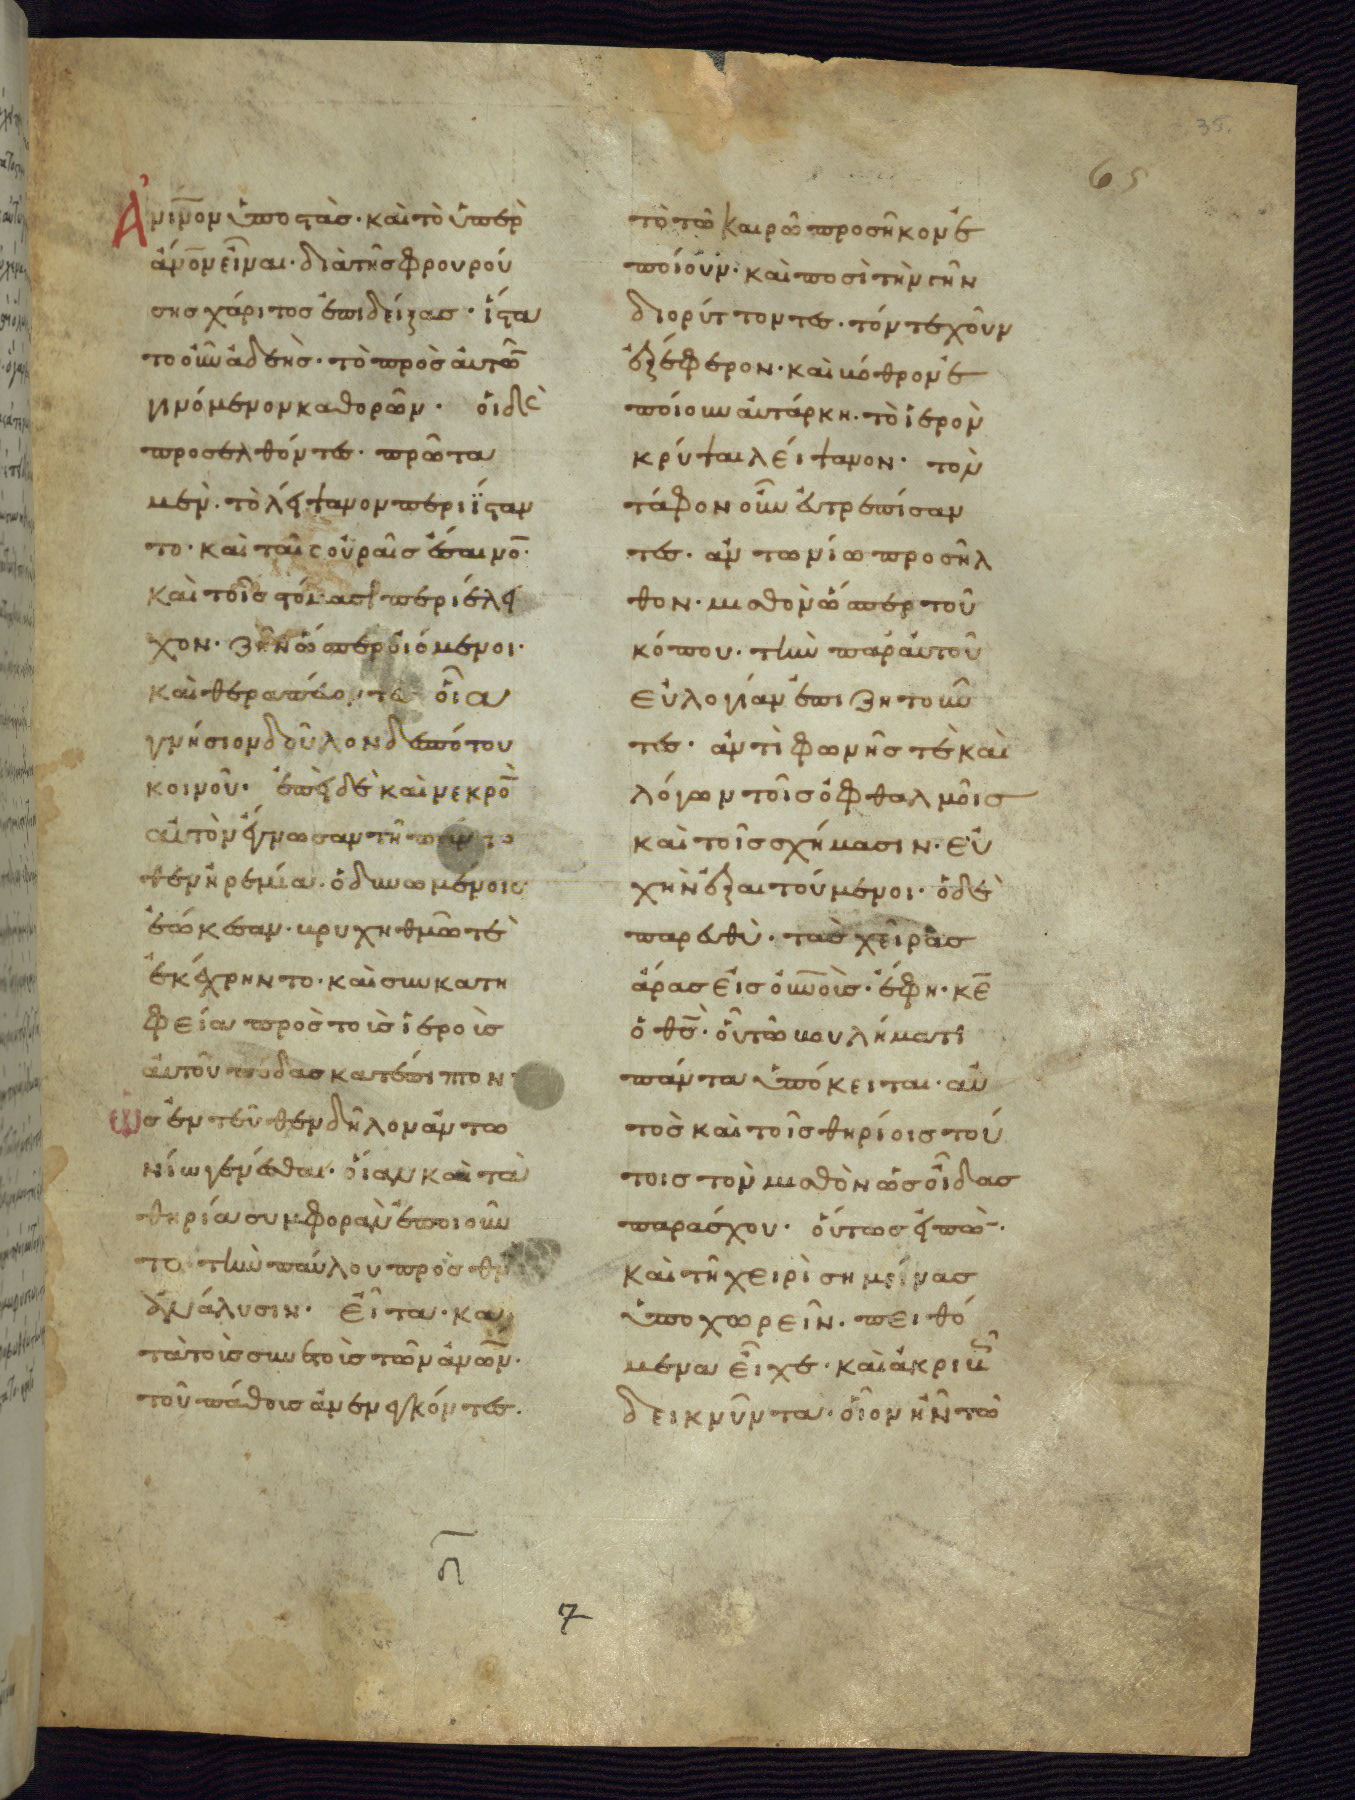 35.
65
Ἀνι̅νον ὑποστὰς· καὶ τὸ ὑπὲρ
ἄν̅ον εἶναι· διὰ τῆς φρουρού
σης χάριτος ἐπιδείξας· ἵστα
το οὖν ἀδεὴς· τὸ πρὸς αὐτῶ̅
γινόμενον καθορῶν· οἱ δὲ
προσελθόντες· πρῶτα
μὲν· τὸ λείψανον περιΐσταν
το· καὶ ταῖς οὐραῖς ἔσαινο̅·
καὶ τοῖς στόμασι περιέλει
χον· ζῆν ὥσπερ οἰόμενοι·
καὶ θεραπεύοντες οἷα
γνήσιον δοῦλον δεσπότου
κοινοῦ· ἐπεὶ δὲ καὶ νεκρὸ̅
αὐτὸν ἔγνωσαν τῆ παντο
θεν ἠρεμία· ὀδυνωμένοις
ἐώκεσαν· βρυχηθμῶ τὲ
ἐκέχρηντο· καὶ σὺν κατη
φεία πρὸς τοῖς ἱεροῖς
αὐτοῦ πόδας κατέπιπτον·
ὡς ἐντεῦθεν δῆλον ἀντω
νίω γενέσθαι· οἵαν καὶ τὰ
θηρία συμφορὰν ἐποιοῦν
το τὴν παύλου πρὸς θν̅
ἀνάλυσιν· εἶτα· κα
τὰ τοῖς συνετοῖς τῶν ἀνω̅ν·
τοῦ πάθοις ἀνενεγκόντες·
τὸ τῶ καιρῶ προσῆκον ἐ
ποίουν· καὶ ποσὶ τὴν γῆν
διορύττοντες· τόν τε χοῦν
ἐξέφερον· καὶ βόθρον ἐ
ποίουν αὐτάρκη· τὸ ἱερὸν
κρύψαι λείψανον· τὸν
τάφον οὖν εὐτρεπίσαν
τες· ἀντωνίω προσῆλ
θον· μισθὸν ὥσπερ τοῦ
κόπου· τὴν παρ' αὐτοῦ
εὐλογίαν ἐπιζητοῦν
τες· ἀντὶ φωνῆς τὲ καὶ
λόγων τοῖς ὀφθαλμοῖς
καὶ τοῖς σχήμασιν· εὐ
χὴν ἐξαιτούμενοι· ὁ δὲ
παρευθὺ· τὰς χεῖρας
ἄρας εἰς οὐ̅οὺς· ἔφη· κε̅
ὁ θς̅· οὗ τῶ βουλήματι
πάντα ὑπόκειται· αὐ
τὸς καὶ τοῖς θηρίοις τού
τοις τὸν μισθὸν ὡς οἶδας
παράσχου· οὕτως εἰπὼ̅·
καὶ τῆ χειρὶ σημείνας
ὑποχωρεῖν· πειθό
μενα εἶχε· καὶ ἀκριβῶς
δεικνῦντα· οἷον ἦν τῶ
η̅
7